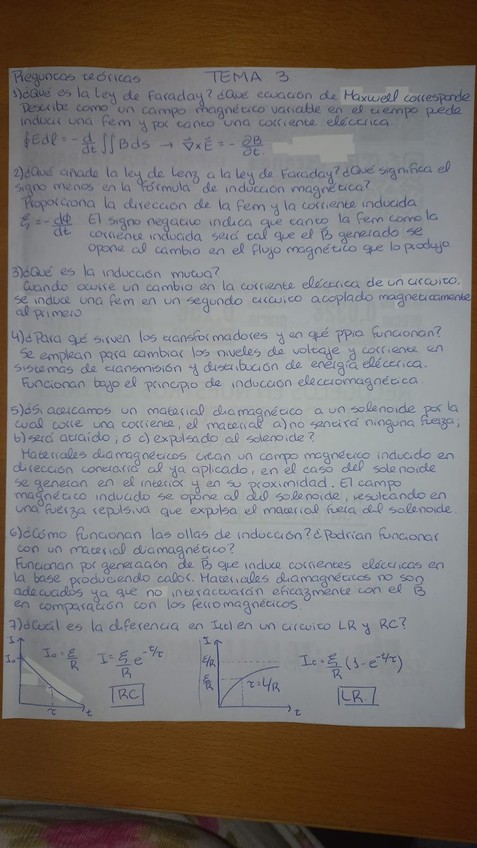 Preguntas teóricas TEMA 3
1) ¿Qué es la Ley de Faraday? ¿Qué ecuación de Maxwell corresponde
Describe como un campo magnético variable en el tiempo puede
inducir una fem y por tanto una corriente eléctrica.
∮Edl = - d/dt ∬ B ds → ∇⃗ x E⃗ = - ∂B/∂t.
2) ¿Qué añade la ley de Lenz a la ley de Faraday? ¿Qué significa el
signo menos en la fórmula de inducción magnética?
Proporciona la dirección de la fem y la corriente inducida
ξ = - dΦ/dt El signo negativo indica que tanto la fem como la
corriente inducida será tal que el B⃗ generado se
opone al cambio en el flujo magnético que lo produjo
3) ¿Qué es la inducción mutua?
Cuando ocurre un cambio en la corriente eléctrica de un circuito,
se induce una fem en un segundo circuito acoplado magnéticamente
al primero
4) ¿Para qué sirven los transformadores y en qué ppio funcionan?
Se emplean para cambiar los niveles de voltaje y corriente en
sistemas de transmisión y distribución de energía eléctrica.
Funcionan bajo el principio de inducción electromagnética.
5) ¿Si acercamos un material diamagnético a un solenoide por la
cual corre una corriente, el material a) no sentirá ninguna fuerza;
b) será atraido; ó c) expulsado al solenoide?
Materiales diamagnéticos crean un campo magnético inducido en
dirección contraria al ya aplicado, en el caso del solenoide
se generan en el interior y en su proximidad. El campo
magnético inducido se opone al del solenoide, resultando en
una fuerza repulsiva que expulsa el material fuera del solenoide.
6) ¿Cómo funcionan las ollas de inducción? ¿Podrían funcionar
con un material diamagnético?
Funcionan por generación de B⃗ que induce corrientes eléctricas en
la base produciendo calor. Materiales diamagnéticos no son
adecuados ya que no interactuarán eficazmente con el B⃗
en comparación con los ferromagnéticos
7) ¿Cuál es la diferencia en I(t) en un circuito LR y RC?
I
I₀
I₀ = ξ/R
I = ξ/R e^-t/τ
RC
τ
t
I
ξ/R
ξ/R
τ = L/R
t
I = ξ/R (1 - e^-t/τ)
LR